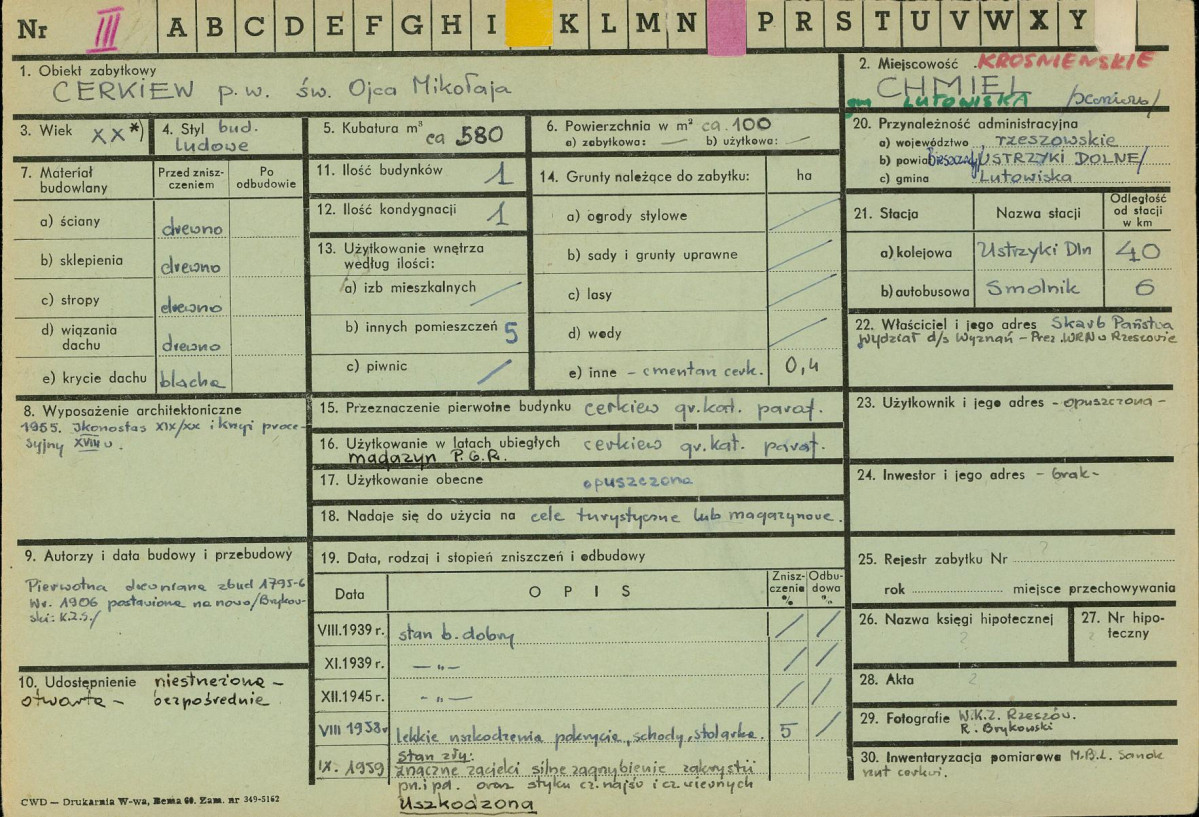 Nr III A B C D E F G H I K L M N P R S T U V W X Y
1. Obiekt zabytkowy
CERKIEW p.w. św. Ojca Mikołaja
2. Miejscowość KROŚNIEŃSKIE
CHMIEL
gm LUTOWISKA
3. Wiek XX *)
4. Styl bud.
ludowe
5. Kubatura m³
ca 580
6. Powierzchnia w m² ca. 100
a) zabytkowa: — b) użytkowa: —
7. Materiał
budowlany
Przed znisz-
czeniem
Po
odbudowie
a) ściany drewno
b) sklepienia drewno
c) stropy drewno
d) wiązania
dachu drewno
e) krycie dachu blacha
8. Wyposażenie architektoniczne
1955. Ikonostas XIX/XX i krzyż proce-
syjny XVIII w.
9. Autorzy i data budowy i przebudowy
Pierwotna drewniana zbud 1795-6
W r. 1906 postawiona na nowo /Brykow-
ski: K.Z.S./
10. Udostępnienie niestrzeżona —
otwarta — bezpośrednie
11. Ilość budynków 1
12. Ilość kondygnacji 1
13. Użytkowanie wnętrza
według ilości:
a) izb mieszkalnych
b) innych pomieszczeń 5
c) piwnic
14. Grunty należące do zabytku: ha
a) ogrody stylowe
b) sady i grunty uprawne
c) lasy
d) wody
e) inne – cmentarz cerk. 0,4
15. Przeznaczenie pierwotne budynku cerkiew gr.kat. paraf.
16. Użytkowanie w latach ubiegłych cerkiew gr.kat. paraf.
magazyn P.G.R.
17. Użytkowanie obecne opuszczona
18. Nadaje się do użycia na cele turystyczne lub magazynowe.
19. Data, rodzaj i stopień zniszczeń i odbudowy
Data O P I S Znisz-
czenie
%
Odbu-
dowa
%
VIII.1939 r. stan b. dobry
XI.1939 r. — „ —
XII.1945 r. — „ —
VIII 1958 r lekkie uszkodzenia pokrycia, schody, stolarka. 5
stan zły:
IX. 1959 znaczne zacieki silne zagrzybienie zakrystii
pn. i pd. oraz styku cz. najśw i cz. wiernych
Uszkodzona
20. Przynależność administracyjna
a) województwo rzeszowskie
b) powiat USTRZYKI DOLNE/
c) gmina Lutowiska
21. Stacja Nazwa stacji Odległość
od stacji
w km
a) kolejowa Ustrzyki Dln 40
b) autobusowa Smolnik 6
22. Właściciel i jego adres Skarb Państwa
Wydział d/s Wyznań – Prez. WRN w Rzeszowie
23. Użytkownik i jego adres – opuszczona –
24. Inwestor i jego adres – brak –
25. Rejestr zabytku Nr ?
rok miejsce przechowywania
26. Nazwa księgi hipotecznej
?
27. Nr hipo-
teczny
?
28. Akta ?
29. Fotografie W.K.Z. Rzeszów.
R. Brykowski
30. Inwentaryzacja pomiarowa M.B.L. Sanok
rzut cerkwi.
CWD — Drukarnia W-wa, Bema 60. Zam. nr 349-5162